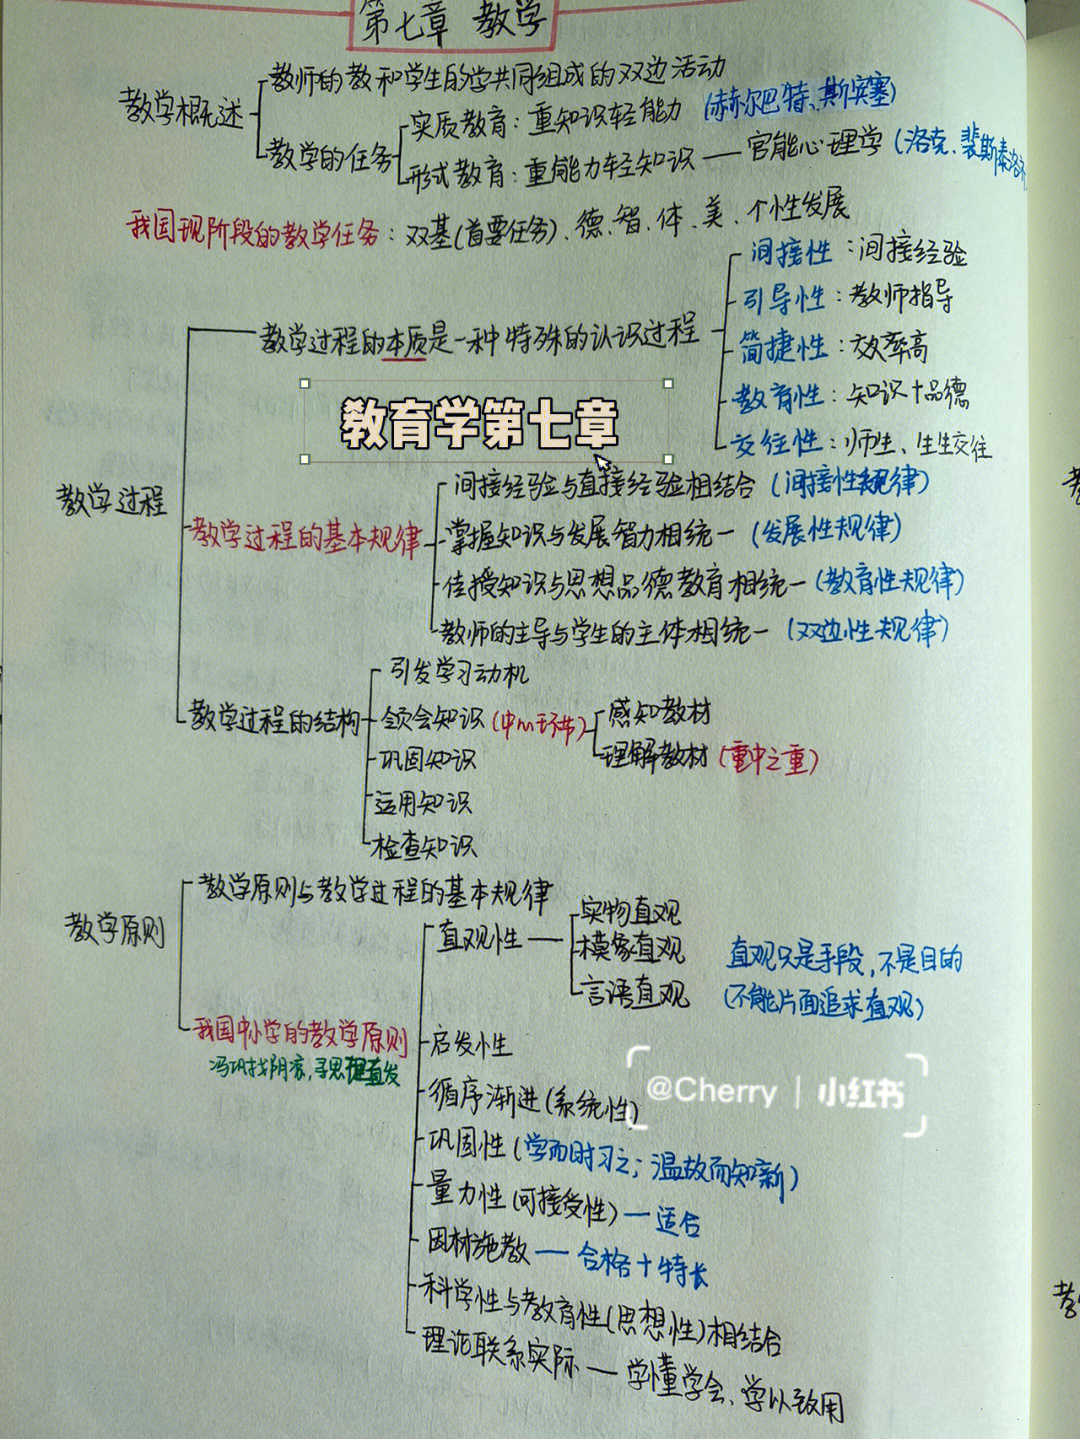 第七章 教学
教学概述
教师的教和学生的学共同组成的双边活动
教学的任务
实质教育：重知识轻能力（赫尔巴特、斯宾塞）
形式教育：重能力轻知识——官能心理学（洛克、裴斯泰洛齐）
我国现阶段的教学任务：双基(首要任务)、德、智、体、美、个性发展
教学过程
教学过程的本质是一种特殊的认识过程
间接性：间接经验
引导性：教师指导
简捷性：效率高
教育性：知识+品德
交往性：师生、生生交往
教育学第七章
教学过程的基本规律
间接经验与直接经验相结合（间接性规律）
掌握知识与发展智力相统一（发展性规律）
传授知识与思想品德教育相统一（教育性规律）
教师的主导与学生的主体相统一（双边性规律）
教学过程的结构
引发学习动机
领会知识（中心环节）
感知教材
理解教材（重中之重）
巩固知识
运用知识
检查知识
教学原则
教学原则与教学过程的基本规律
我国中小学的教学原则
直观性
实物直观
模象直观
言语直观
直观只是手段，不是目的
（不能片面追求直观）
启发性
循序渐进(系统性)
巩固性（学而时习之；温故而知新）
量力性(可接受性)—适合
因材施教—合格+特长
科学性与教育性(思想性)相结合
理论联系实际—学懂学会、学以致用
@Cherry | 小红书